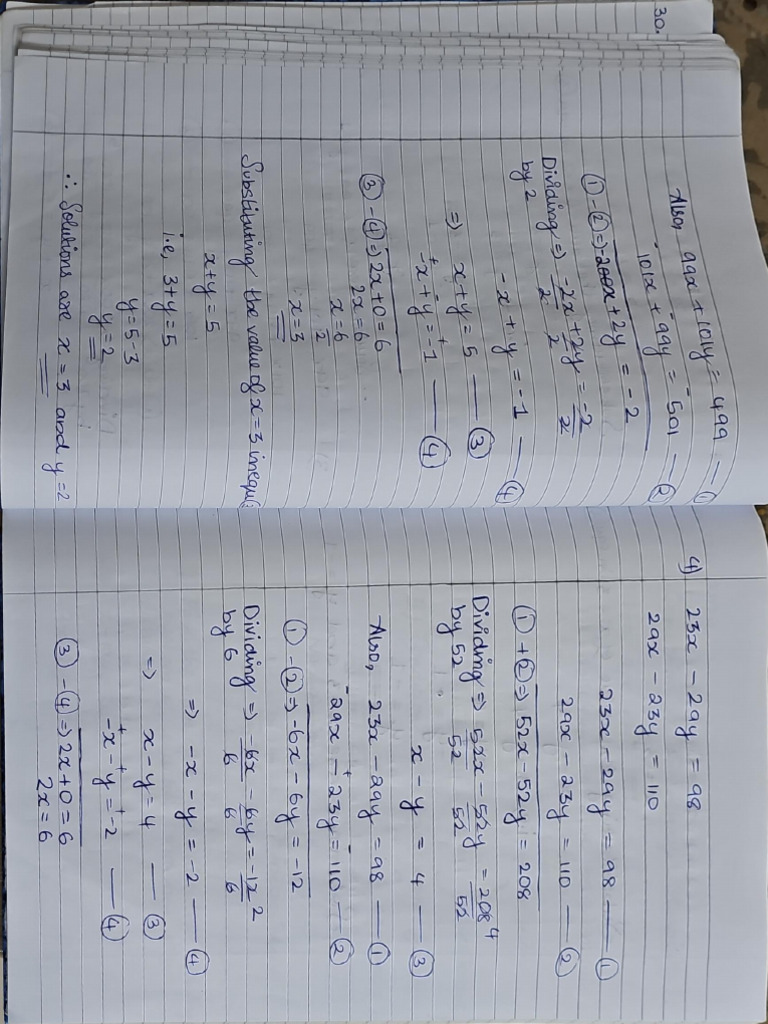 30.
Also, 99x + 101y = 499 — ①
101x + 99y = 501 — ②
① - ② ⇒ -2x + 2y = -2
Dividing by 2 ⇒ -2x/2 + 2y/2 = -2/2
-x + y = -1 — ④
⇒ x + y = 5 — ③
-x + y = -1 — ④
③ - ④ ⇒ 2x + 0 = 6
2x = 6
x = 6/2
x = 3
Substituting the value of x = 3 in
x + y = 5
i.e, 3 + y = 5
y = 5 - 3
y = 2
∴ Solutions are x = 3 and y = 2
4) 23x - 29y = 98
29x - 23y = 110
23x - 29y = 98 — ①
29x - 23y = 110 — ②
① + ② ⇒ 52x - 52y = 208
Dividing by 52 ⇒ 52x/52 - 52y/52 = 208/52 4
x - y = 4 — ③
Also, 23x - 29y = 98 — ①
29x - 23y = 110 — ②
① - ② ⇒ -6x - 6y = -12
Dividing by 6 ⇒ -6x/6 - 6y/6 = -12/6 2
⇒ -x - y = -2 — ④
⇒ x - y = 4 — ③
-x - y = -2 — ④
③ - ④ ⇒ 2x + 0 = 6
2x = 6